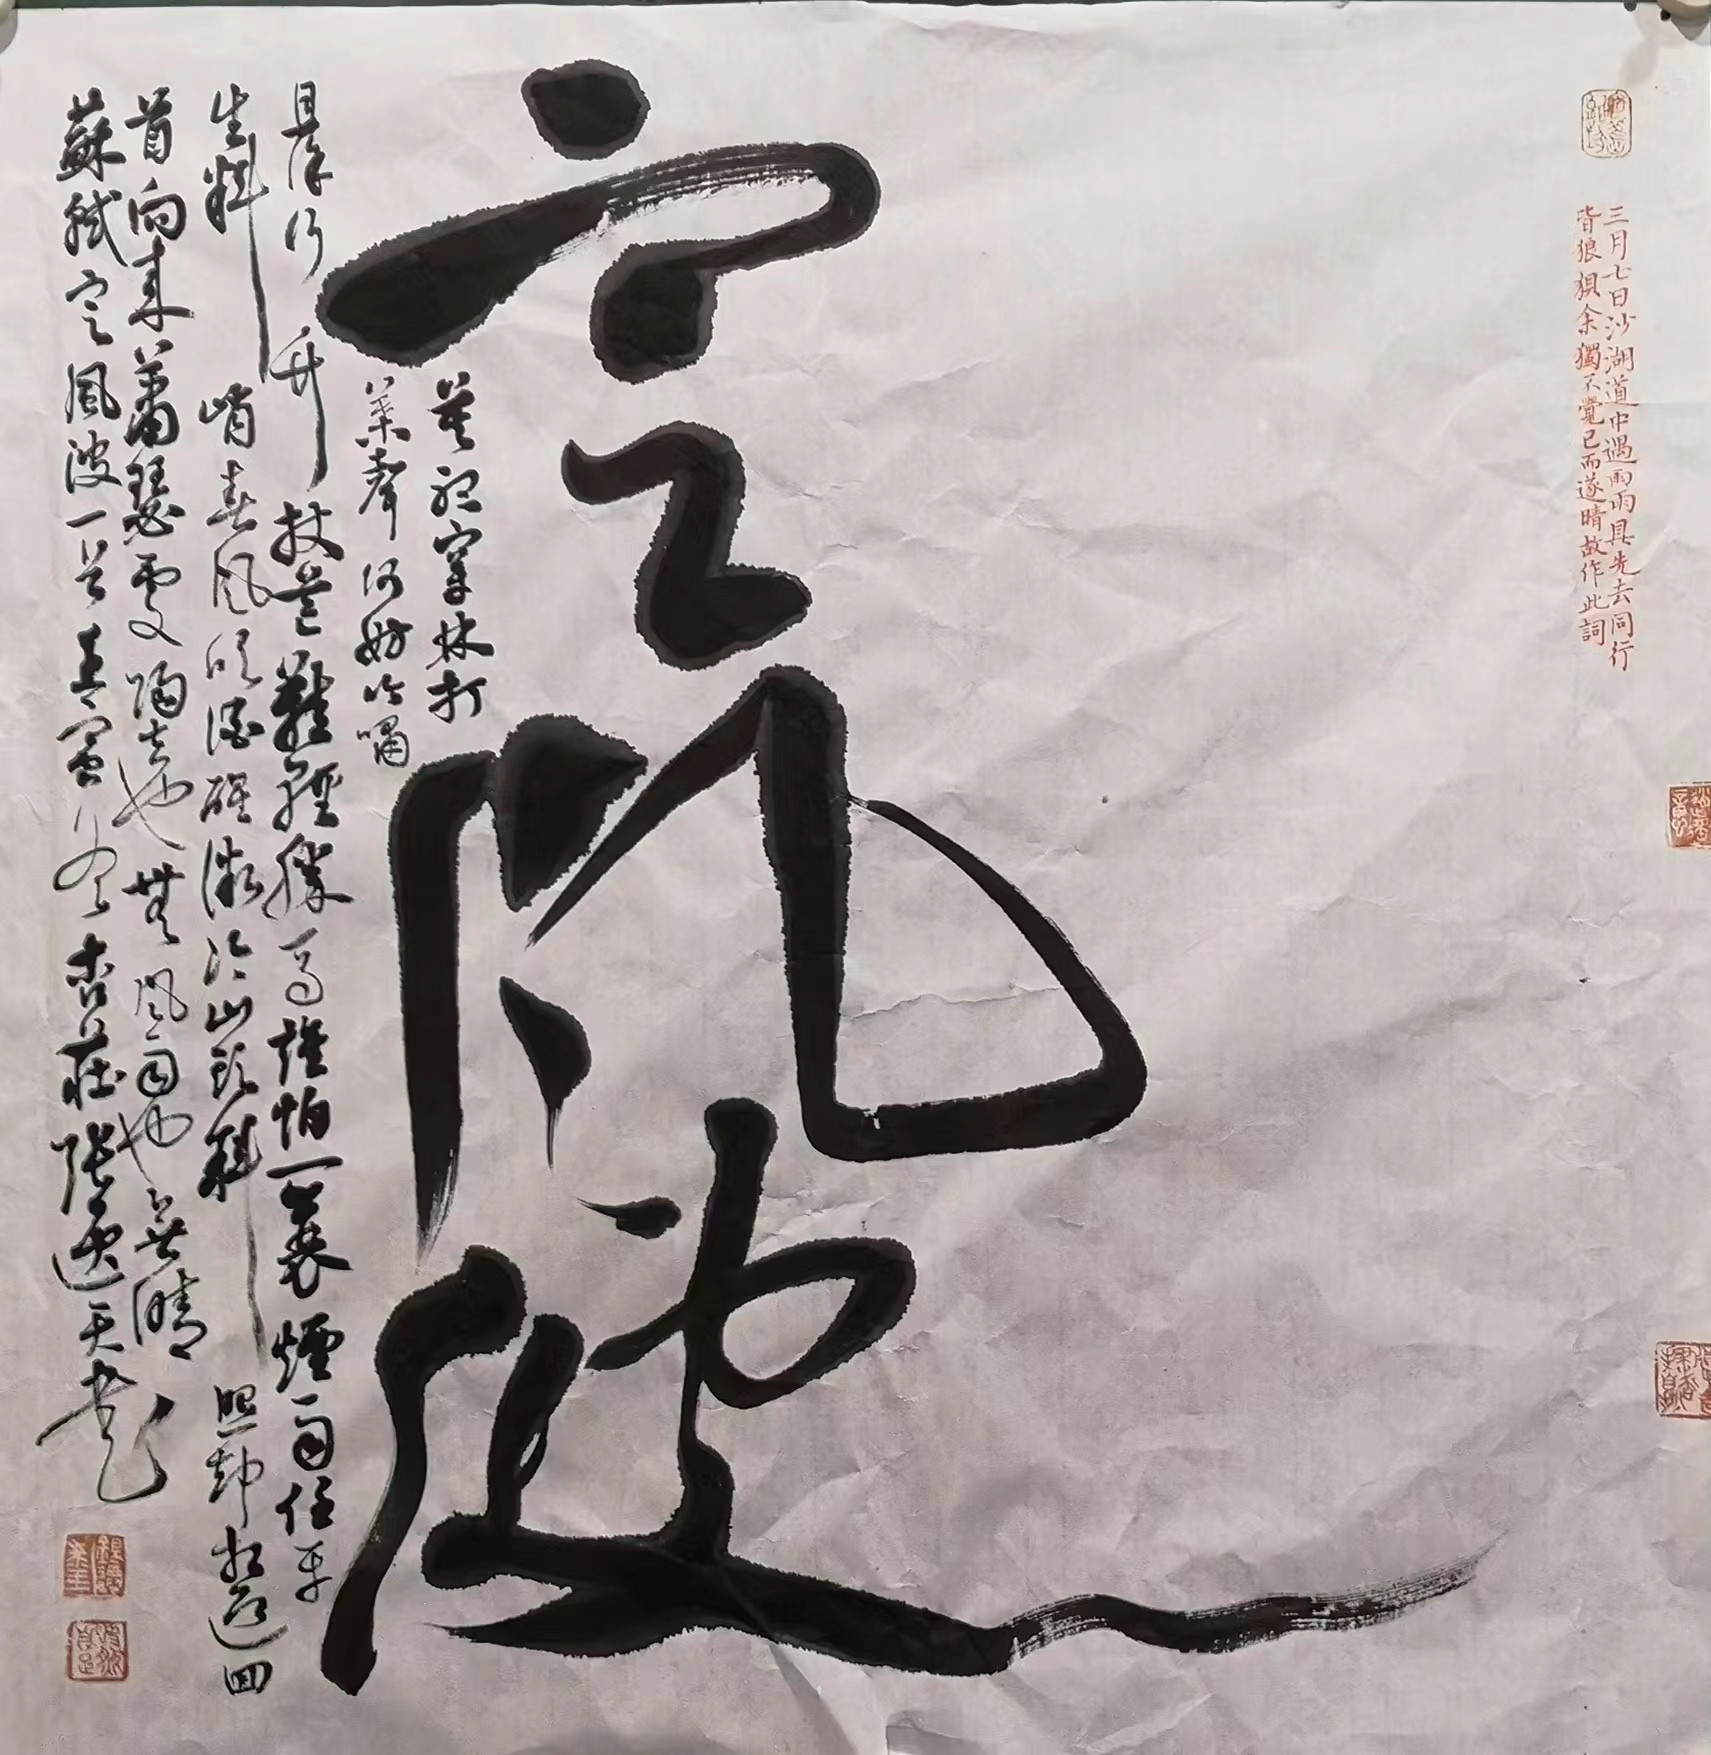 三月七日沙湖道中遇雨雨具先去同行
皆狼狽余獨不覺已而遂晴故作此詞
定風波
莫聽穿林打
葉聲何妨吟嘯
且徐行竹杖芒鞋輕勝馬誰怕一蓑煙雨任平
生料峭春風吹酒醒微冷山頭斜照却相迎回
首向來蕭瑟處歸去也無風雨也無晴
蘇軾定風波一首 杏莊張逸天書